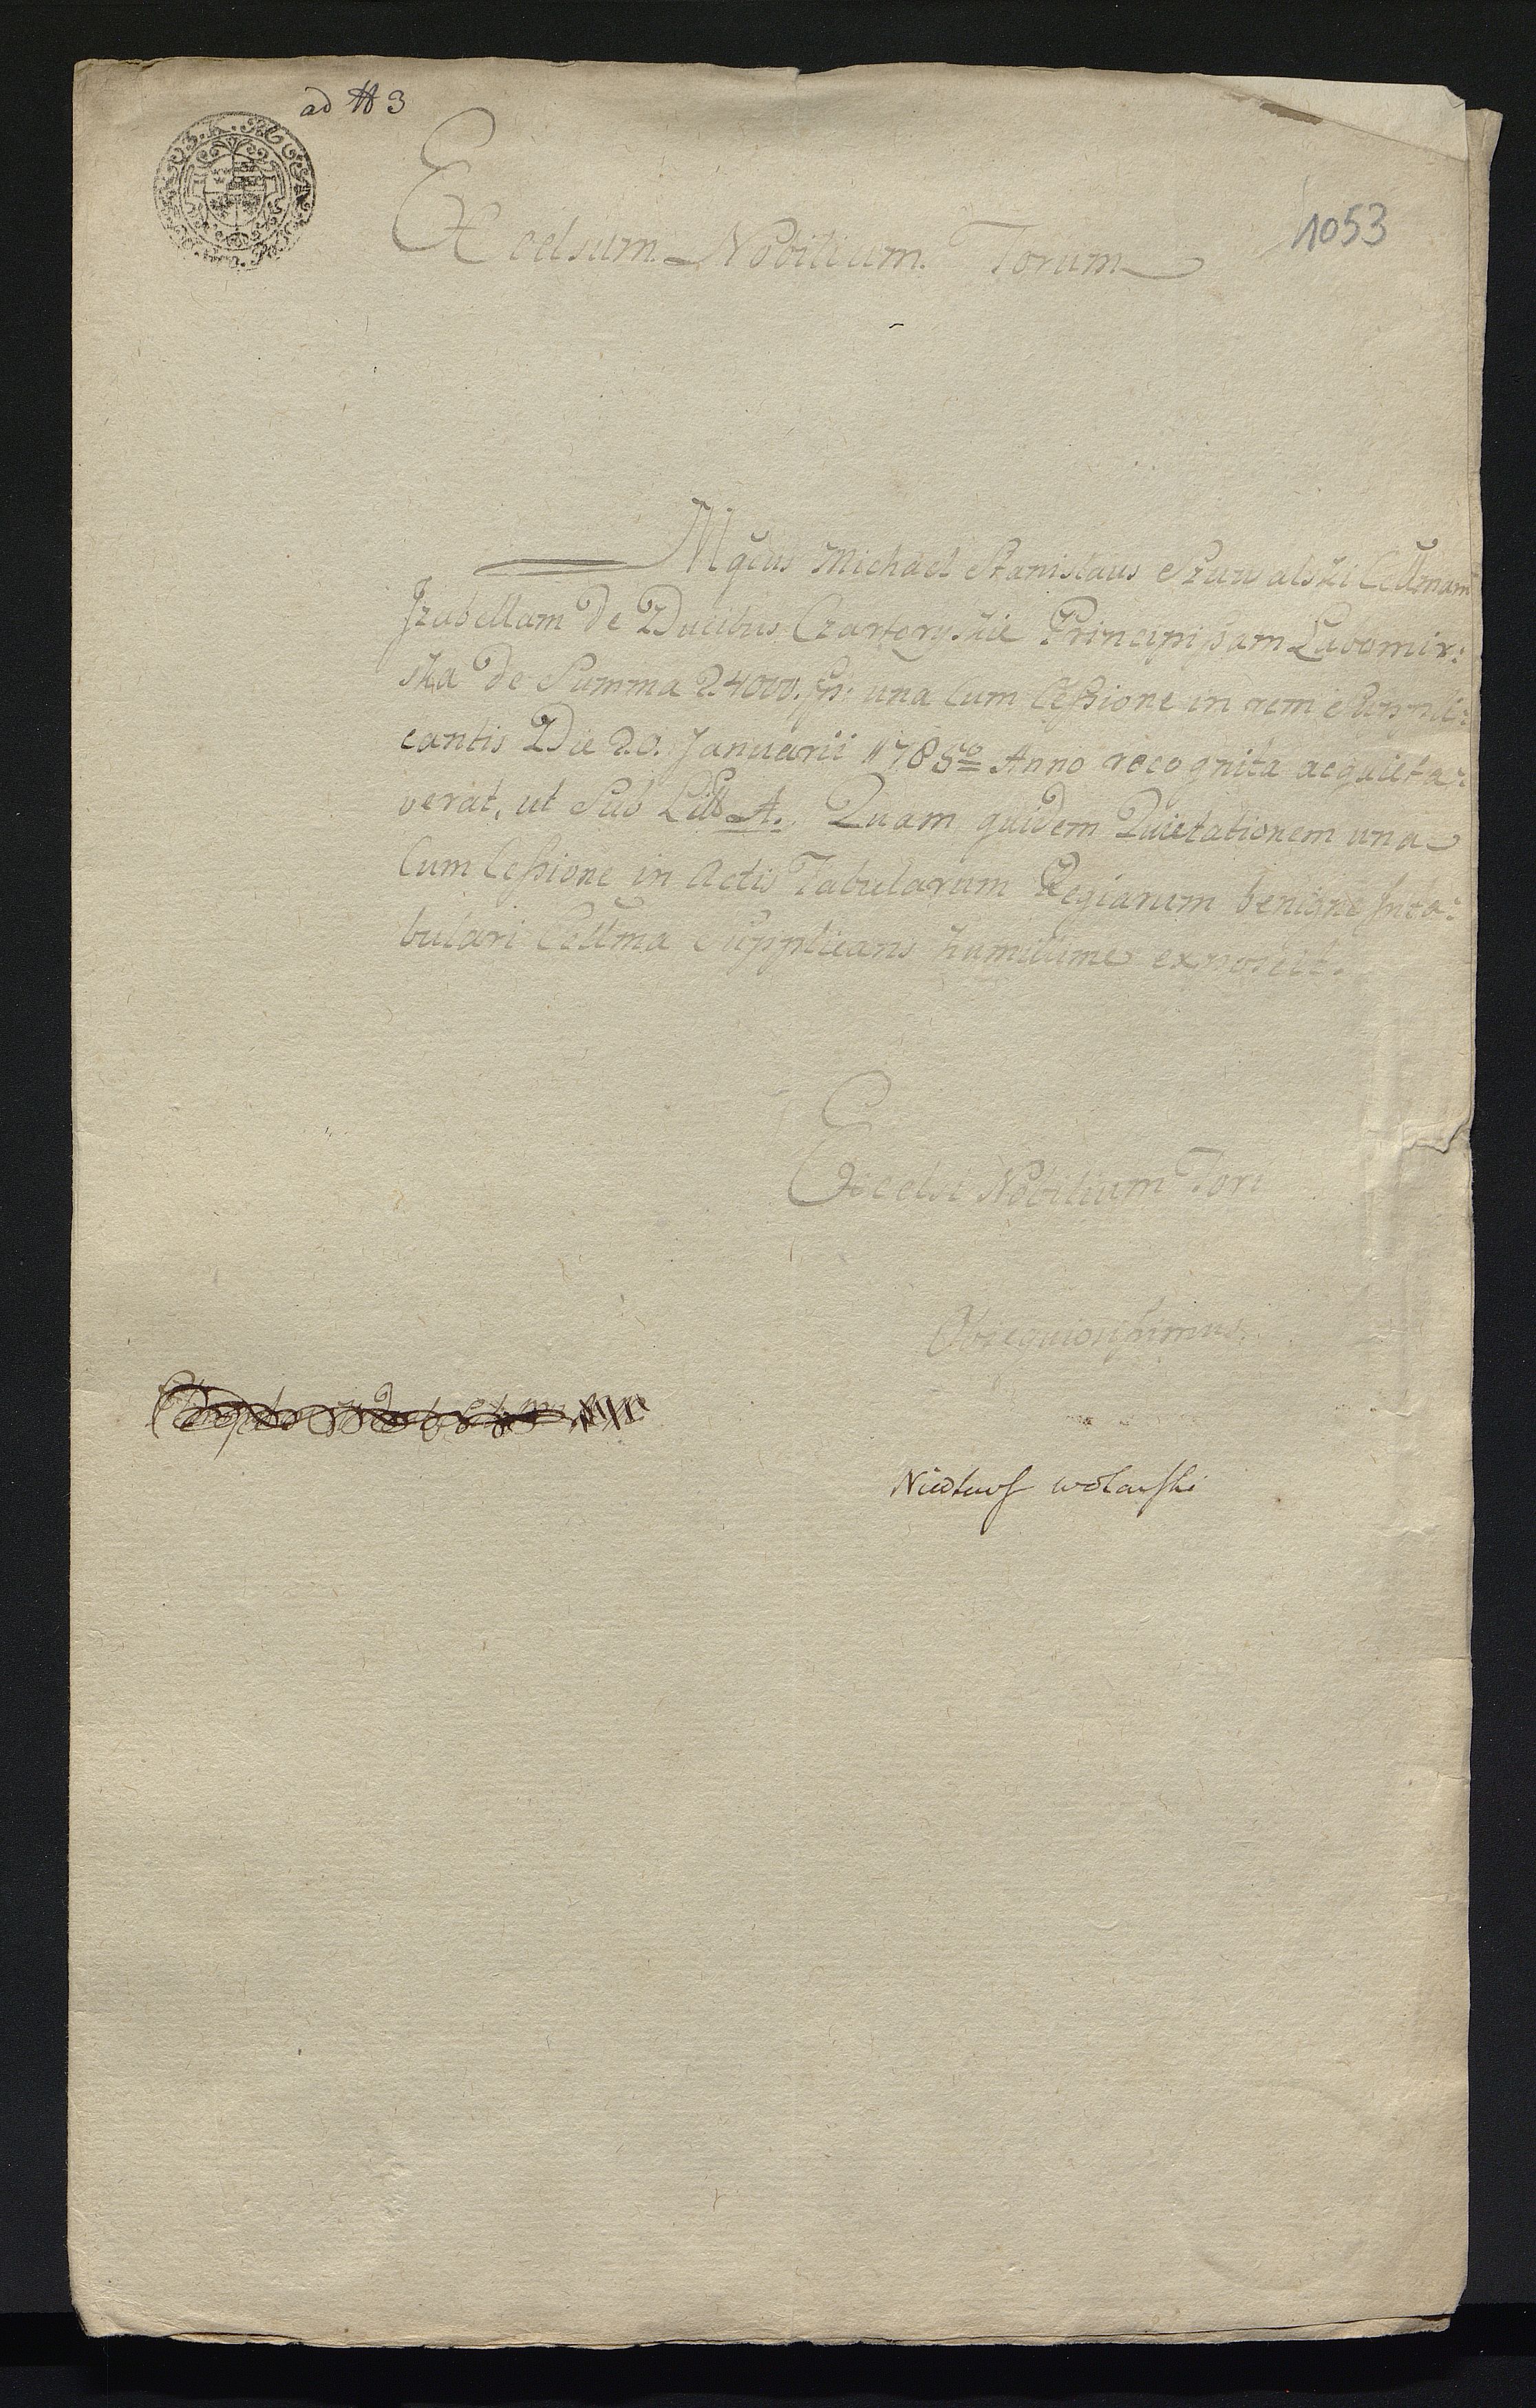 ad # 3
1053
Excelsum Nobilium Forum
Mgcus Michael Stanislaus Szuwalski Cellmam
Izabellam de Ducibus Czartoryskie Principissam Lubomir:
ska de Summa 24000. fp: una Cum Cessione in rem Suppli:
cantis Die 20. Januarii 1785to Anno recognita acquieta:
verat, ut Sub Litt A. Quam quidem Quietationem una
Cum Cessione in Actis Tabularum Regiarum benigne Inta:
bulari Cellma Supplicans humillime exposcit.
Excelsi Nobilium Fori
Obsequiosissimus
wolanski